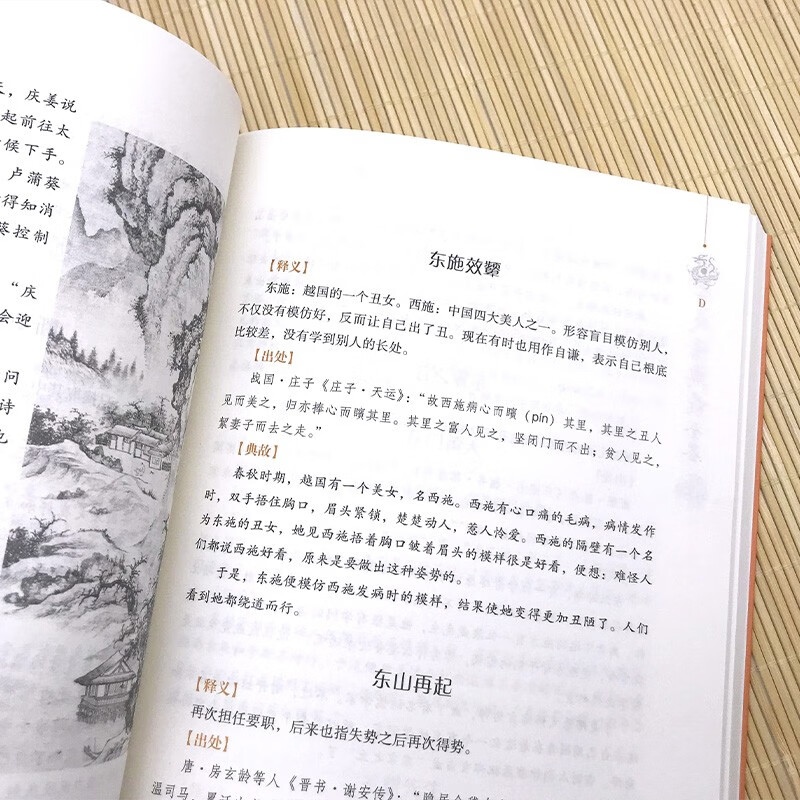 天，庆姜说
起前往太
候下手。
卢蒲葵
得知消
葵控制
“庆
会迎
问
诗
也
东施效颦
【释义】
东施：越国的一个丑女。西施：中国四大美人之一。形容盲目模仿别人，
不仅没有模仿好，反而让自己出了丑。现在有时也用作自谦，表示自己根底
比较差，没有学到别人的长处。
【出处】
战国·庄子《庄子·天运》：“故西施病心而矉（pín）其里，其里之丑人
见而美之，归亦捧心而矉其里。其里之富人见之，坚闭门而不出；贫人见之，
絜妻子而去之走。”
【典故】
春秋时期，越国有一个美女，名西施。西施有心口痛的毛病，病情发作
时，双手捂住胸口，眉头紧锁，楚楚动人，惹人怜爱。西施的隔壁有一个名
为东施的丑女，她见西施捂着胸口皱着眉头的模样很是好看，便想：难怪人
们都说西施好看，原来是要做出这种姿势的。
于是，东施便模仿西施发病时的模样，结果使她变得更加丑陋了。人们
看到她都绕道而行。
东山再起
【释义】
再次担任要职，后来也指失势之后再次得势。
【出处】
唐·房玄龄等人《晋书·谢安传》：“隐居会稽
温司马，累迁
D